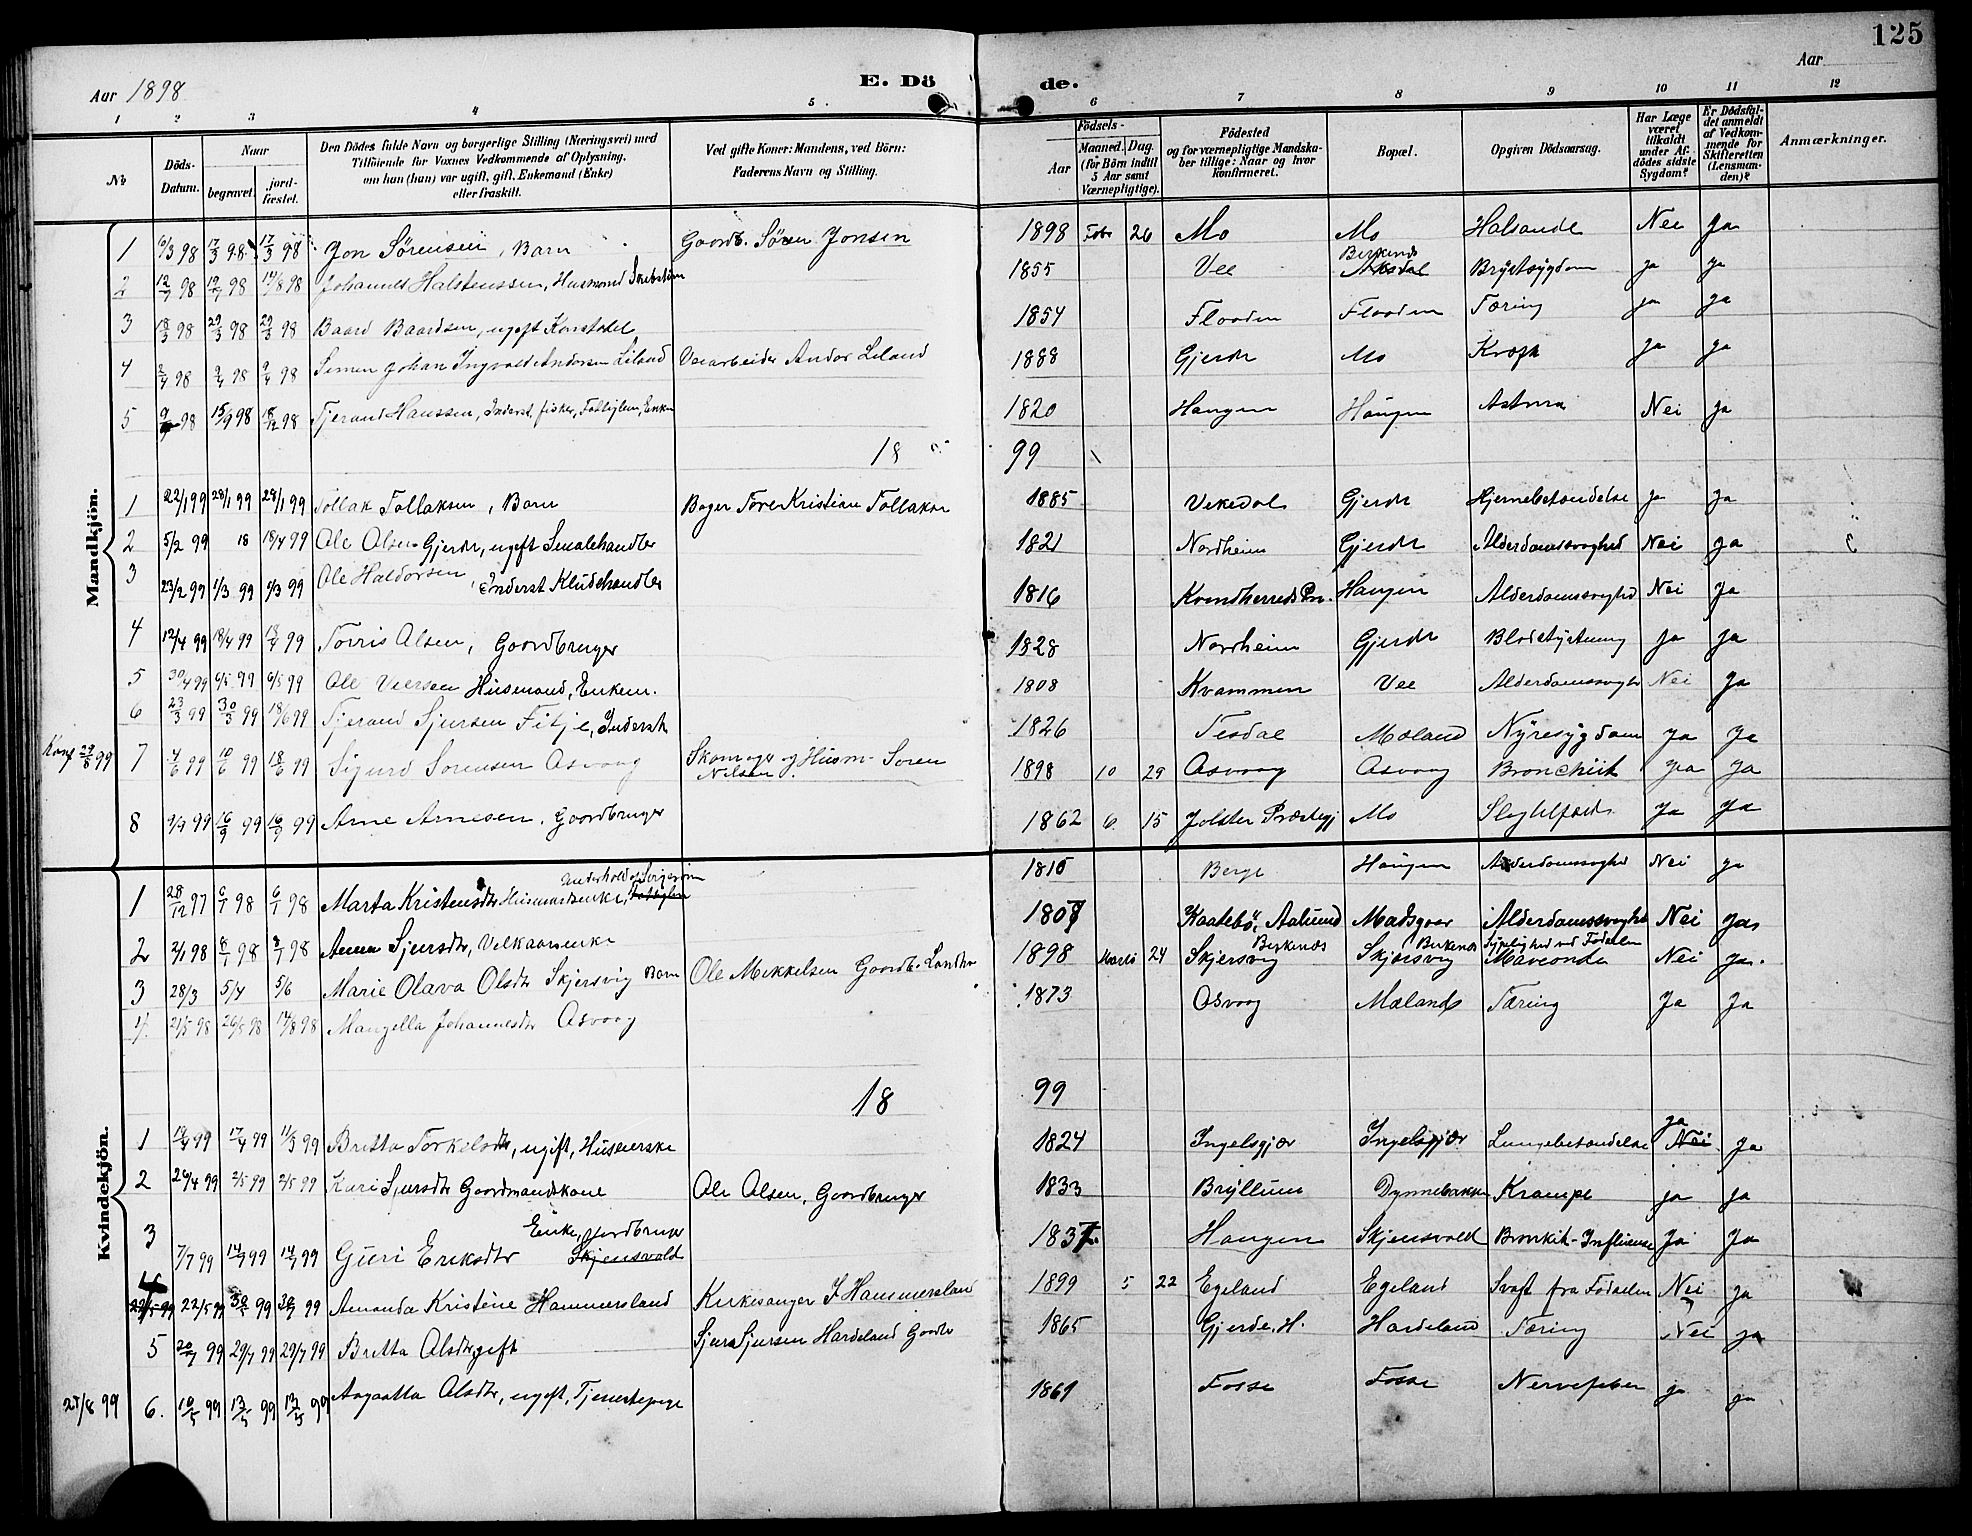 125
Aar 1898
E. Dö de.
Aar
1 2 3 4 5. 6 7 8 9 10 11 12
№
Döds-Datum.
Naar
begravet.
jord-fæstet.
Den Dödes fulde Navn og borgerlige Stilling (Næringsvei) med
Tilföiende for Voxnes Vedkommende af Oplysning,
om han (hun) var ugift, gift, Enkemand (Enke)
eller fraskilt.
Ved gifte Koner: Mandens, ved Börn:
Faderens Navn og Stilling.
Födsels-
Aar
Maaned. Dag.
(for Börn indtil
5 Aar samt
Værnepligtige).
Födested
og for værnepligtige Mandska-
ber tillige: Naar og hvor
konfirmeret.
Bopæl.
Opgiven Dödsaarsag.
Har Læge
været
tilkaldt
under Af-
dödes sidste
Sygdom?
Er Dödsfal-
det anmeldt
af Vedkom-
mende for
Skifteretten
(Lensman-
den)?
Anmærkninger.
Mandkjön.
1 6/3 98 17/3 98 17/3 98 Jon Sørensen, Barn Gaardb. Søren Jonsen 1898 Febr 26 Mo Mo Halsonde Nei Ja
2 12/7 98 19/7 98 14/8 98 Johannes Halstenssen, Husmand 1855 Vee Birkenes Brystsygdom ja ja
3 18/3 98 29/3 98 29/3 98 Baard Baardsen, ugift 1854 Flaaden Flaaden Tæring ja ja
4 2/4 98 9/4 98 9/4 98 Simen Johan Ingvald Andorsen Liland Veiarbeider Andor Leland 1888 Gjerde Mo Kræft ja ja
5 98 15/9 98 18/12 98 Tjerand Hanssen, Inderst, fisker, Fattiglem, Enkem 1820 Haugen Haugen Astma Nei ja
18 99
1 22/1 99 28/1 99 28/1 99 Tollak Tollaksen, Barn Bager Tore Kristian Tollaksen 1885 Vikedal Gjerde Hjernebetændelse ja ja
2 5/2 99 18 18/4 99 Ole Olsen Gjerde, ugift Smalehandler 1821 Nordheim Gjerde Alderdomssvaghed Nei ja
3 23/2 99 1/3 99 1/3 99 Ole Haldorsen, Inderst Kludehandler 1816 Kvindherreds Pr. Haugen Alderdomssvaghed Nei Ja
4 12/4 99 18/4 99 18/4 99 Torris Olsen, Gaardbruger 1828 Nordheim Gjerde Blodstyrtning Ja Ja
5 30/4 99 6/5 99 6/5 99 Ole Husmand, Enkem. 1808 Kvammen Vee Alderdomssvaghd Nei Ja
6 23/3 99 30/3 99 18/6 99 Tjerand Sjursen Fitje, Inderst 1826 Tesdal Mæland Nyresygdom Ja Ja
29/8 99 7 4/6 99 10/6 99 18/6 99 Sigurd Sørensen Osvaag Skomager og Husm. Soren Nilsen 1898 10 29 Osvaag Osvaag Bronchit Ja Ja
8 9/9 99 16/9 99 16/9 99 Arne Arnesen, Gaardbruger 1862 6 15 Jolster Præstegj Mo Slagtilfælde Ja Ja
Kvindekjön.
1 28/12 97 6/1 98 6/1 98 Marta Kristensdtr Husmandsenke, Underhold af Svigersøn Fattiglem 1815 Berge Haugen Alderdomssvaghed Nei ja
2 2/1 98 8/1 98 8/1 98 Anna Sjursdtr, 1807 Aalund Madsgaar Alderdomssvaghed Nei Ja
3 28/3 5/4 5/6 Marie Olava Olsdtr Skjersvig Barn Ole Mikkelsen Gaardb. 1898 Marts 24 Skjersvig Birkenes Skjersvig Birkenes Sygelighed ved Fødselen Nei Ja.
4. 21/5 98 26/5 98 14/8 98 Mangella Johannesdtr Osvaag 1873 Osvaag Mæland Tæring Ja Ja
18 99
1 99 17/4 99 11/3 99 Britta Torkelsdtr, ugift, Huseierske 1824 Ingelsgjær Ingelsgjær Lungebetændelse Ja Nei Ja
2 26/4 99 2/5 99 2/5 99 Kari Sjursdtr Gaardmandskone Ole Olsen, Gaardbruger 1833 Bryllum Dynnebakken Krampe ja ja
3 7/7 99 14/7 99 14/7 99 Guri Eriksdtr Enke, Jordbruger Skjensvold 1837 Haugen Skjensvold Bronkit-Influensa Ja Ja
4 22/5 99 22/5 99 30/5 99 30/5 99 Amanda Kristine Hammersland Kirkesanger I Hammersland 1899 5 22 Egeland Egeland Svag fra Fødselen Nei ja
5 20/7 99 29/7 99 29/7 99 Britta Olsdtr, gift Sjur Sjursen Hardeland Gaardbr 1865 Gjerde, H. Hardeland Tæring Nei ja
27/8 99 6. 10/5 99 13/5 99 13/5 99 Aagaatta Olsdtr, ugift, Tjenestepige 1861 Fosse Fosse Nervefeber ja ja